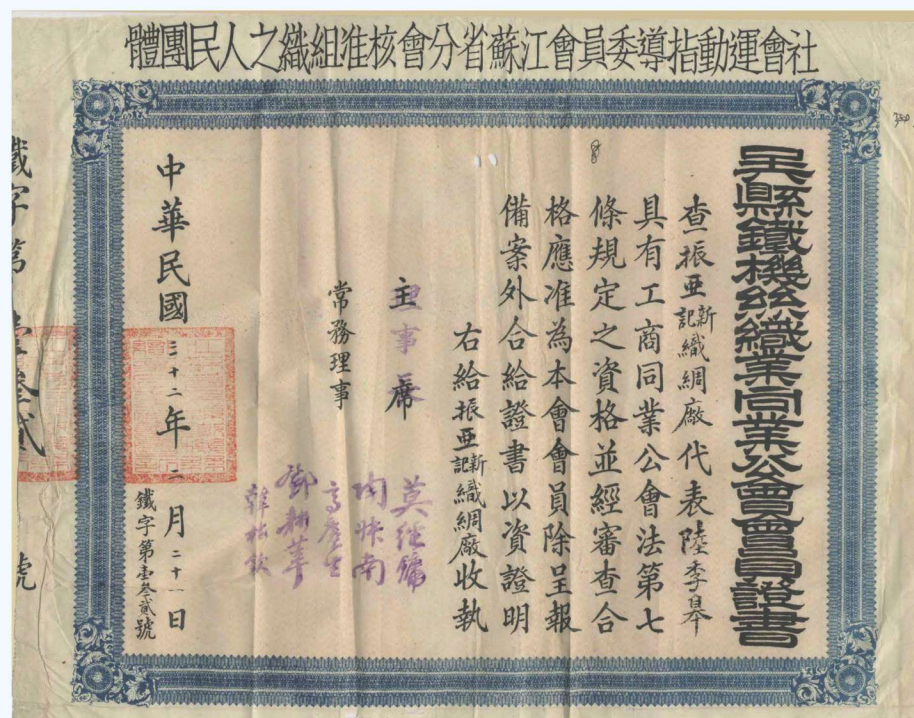 社會運動指導委員會江蘇省分會核准組織之人民團體
吳縣鐵機絲織業同業公會會員證書
查振亚新記織綢廠代表陸季皋
具有工商同業公會法第七
條規定之資格並經審查合
格應准為本會會員除呈報
備案外合給證書以資證明
右給振亚新記織綢廠收執
主事席
常務理事
中華民國三十二年二月二十一日
鐵字第壹叄貳號